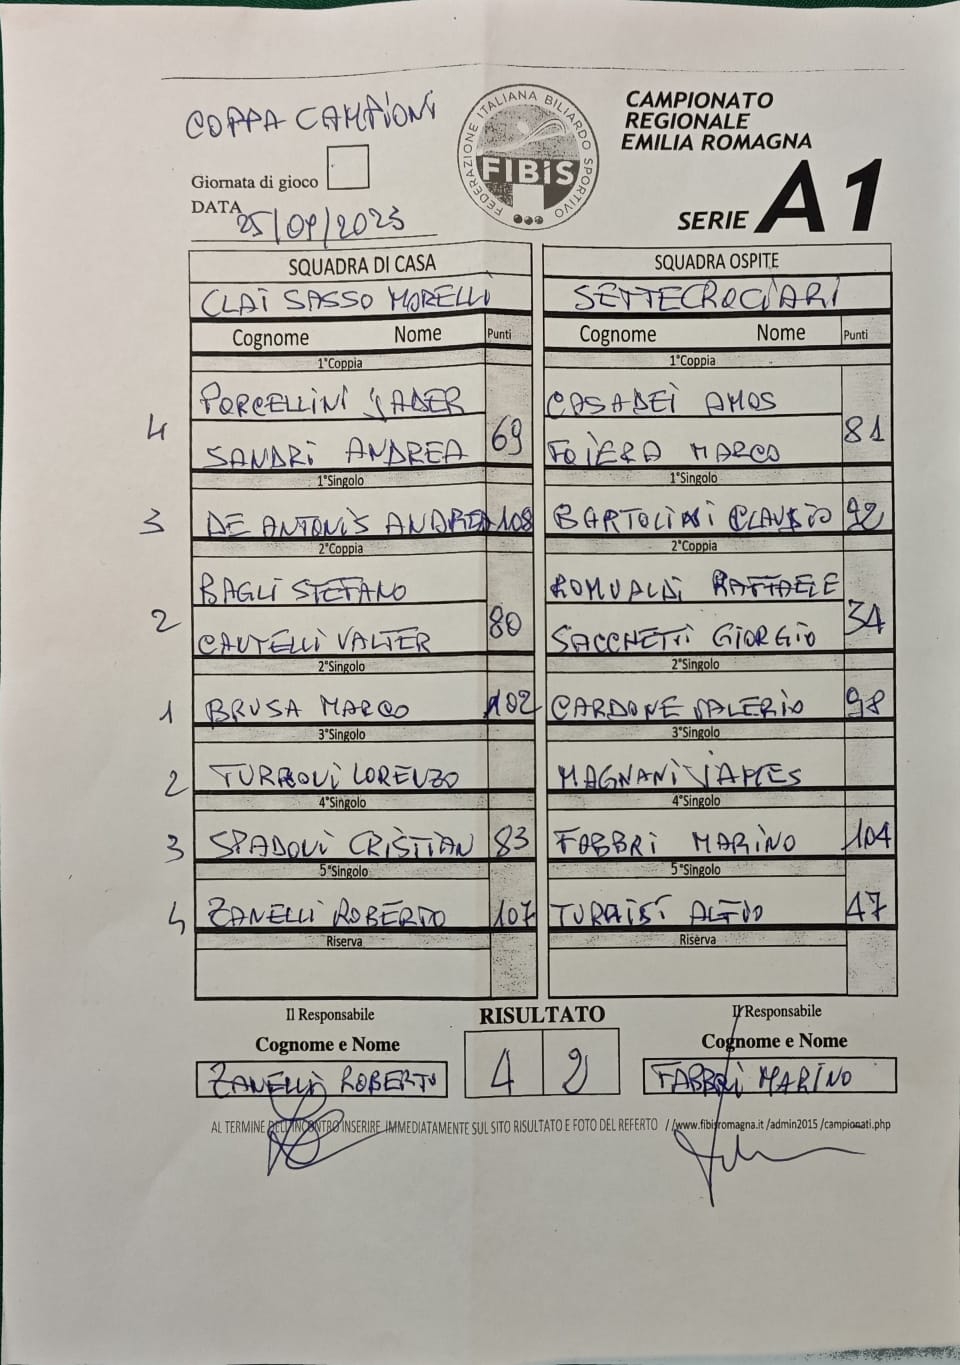 COPPA CAMPIONI
FEDERAZIONE ITALIANA BILIARDO SPORTIVO
FIBiS
CAMPIONATO
REGIONALE
EMILIA ROMAGNA
SERIE A1
Giornata di gioco
DATA 25/09/2023
SQUADRA DI CASA SQUADRA OSPITE
CLAI SASSO MORELLI SETTECROCIARI
Cognome Nome Punti Cognome Nome Punti
1°Coppia 1°Coppia
PORCELLINI JADER CASADEI AMOS
4 69 81
SANDRI ANDREA FOIERA MARCO
1°Singolo 1°Singolo
3 DE ANTONIS ANDREA 108 BARTOLINI CLAUDIO 92
2°Coppia 2°Coppia
BAGLI STEFANO ROMUALDI RAFFAELE
2 80 34
CAUTELLI VALTER SACCHETTI GIORGIO
2°Singolo 2°Singolo
1 BRUSA MARCO 102 CARDONE VALERIO 98
3°Singolo 3°Singolo
2 TURRONI LORENZO MAGNANI JAMES
4°Singolo 4°Singolo
3 SPADONI CRISTIAN 83 FABBRI MARINO 104
5°Singolo 5°Singolo
4 ZANELLI ROBERTO 107 47
Riserva Riserva
Il Responsabile RISULTATO Il Responsabile
Cognome e Nome Cognome e Nome
ZANELLI ROBERTO 4 2 FABBRI MARINO
AL TERMINE DELL'INCONTRO INSERIRE IMMEDIATAMENTE SUL SITO RISULTATO E FOTO DEL REFERTO //www.fibisromagna.it /admin2015 /campionati.php